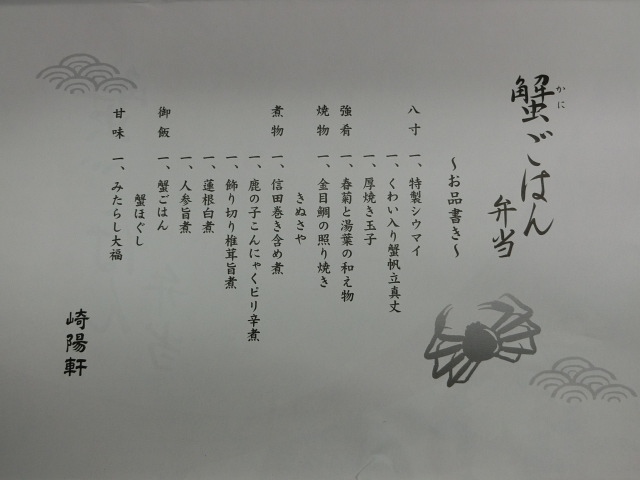 蟹ごはん
かに
弁当
～お品書き～
八寸 一、特製シウマイ
一、くわい入り蟹帆立真丈
一、厚焼き玉子
強肴 一、春菊と湯葉の和え物
焼物 一、金目鯛の照り焼き
きぬさや
煮物 一、信田巻き含め煮
一、鹿の子こんにゃくピリ辛煮
一、飾り切り椎茸旨煮
一、蓮根白煮
一、人参旨煮
御飯 一、蟹ごはん
蟹ほぐし
甘味 一、みたらし大福
崎陽軒